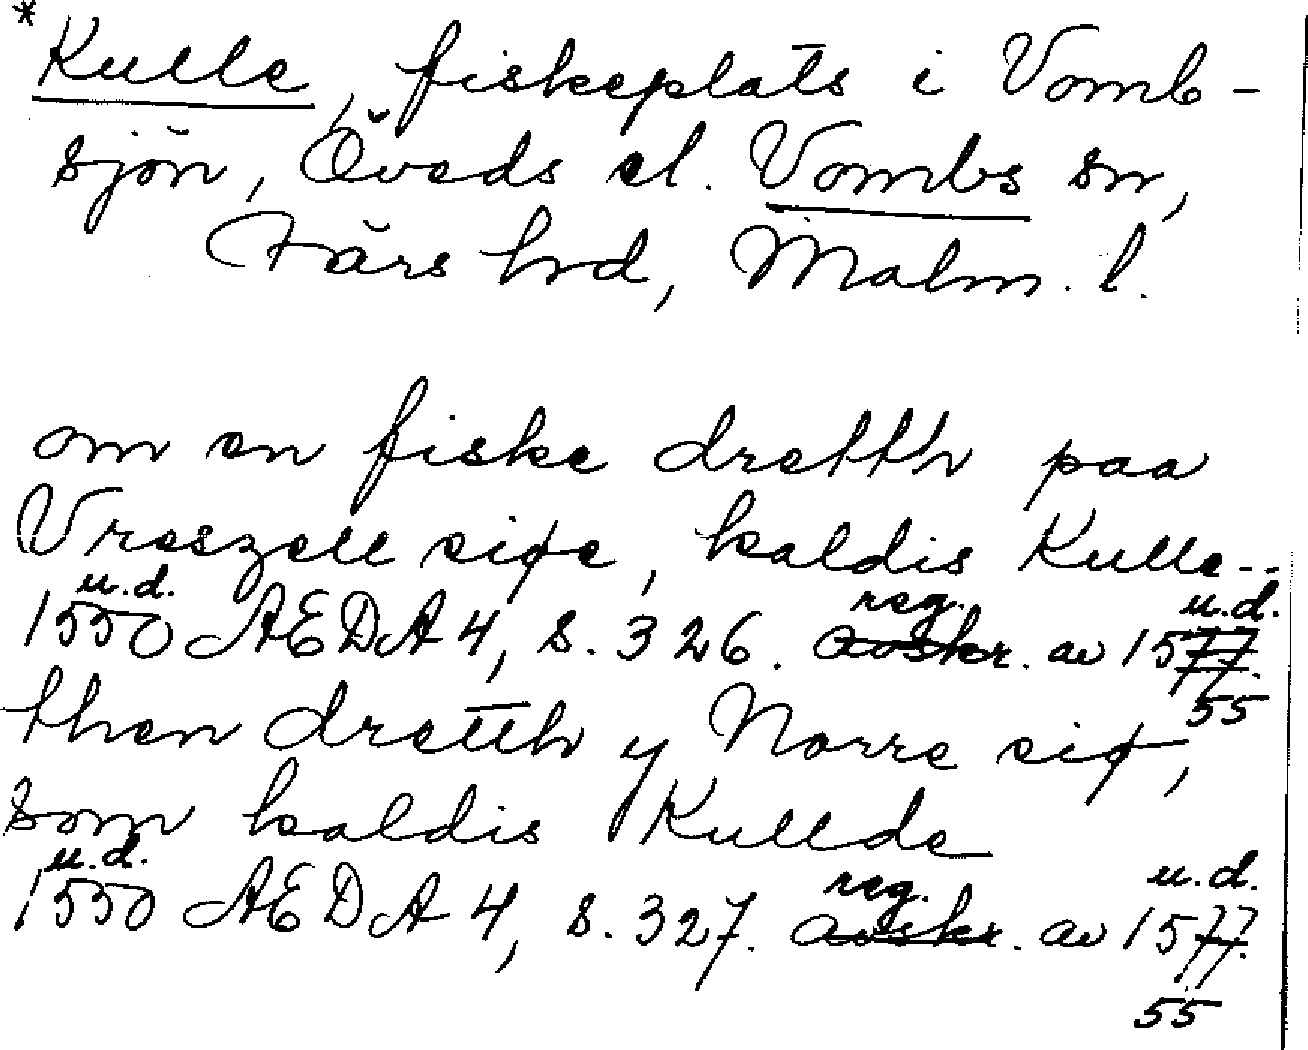 *
Kulle, fiskeplats i Vomb-
sjön, Öveds el. Vombs sn,
Färs hd, Malm. l.
om en fiske dretth paa
Vreszell siqe, kaldis Kulle--
u.d. reg. u.d.
1550 AEDA 4, s. 326. avskr. av 1577.
55
then dretth y Norre siq,
som kaldis Kullde
u.d. reg. u.d.
1550 AEDA 4, s. 327. avskr. av 1577.
55